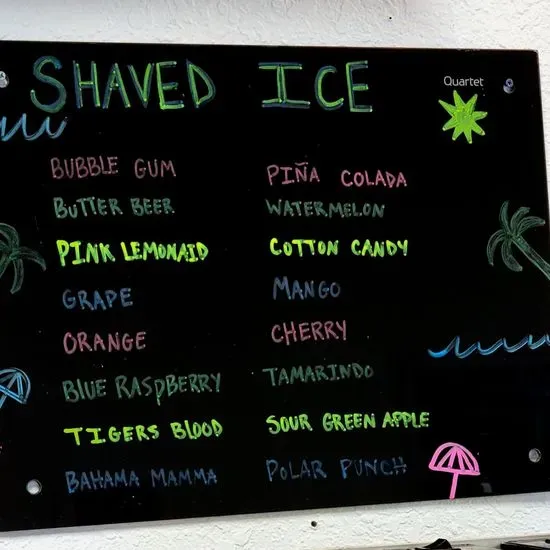 SHAVED ICE
Quartet
BUBBLE GUM
BUTTER BEER
PINK LEMONAID
GRAPE
ORANGE
BLUE RASPBERRY
TIGERS BLOOD
BAHAMA MAMMA
PIÑA COLADA
WATERMELON
COTTON CANDY
MANGO
CHERRY
TAMARINDO
SOUR GREEN APPLE
POLAR PUNCH